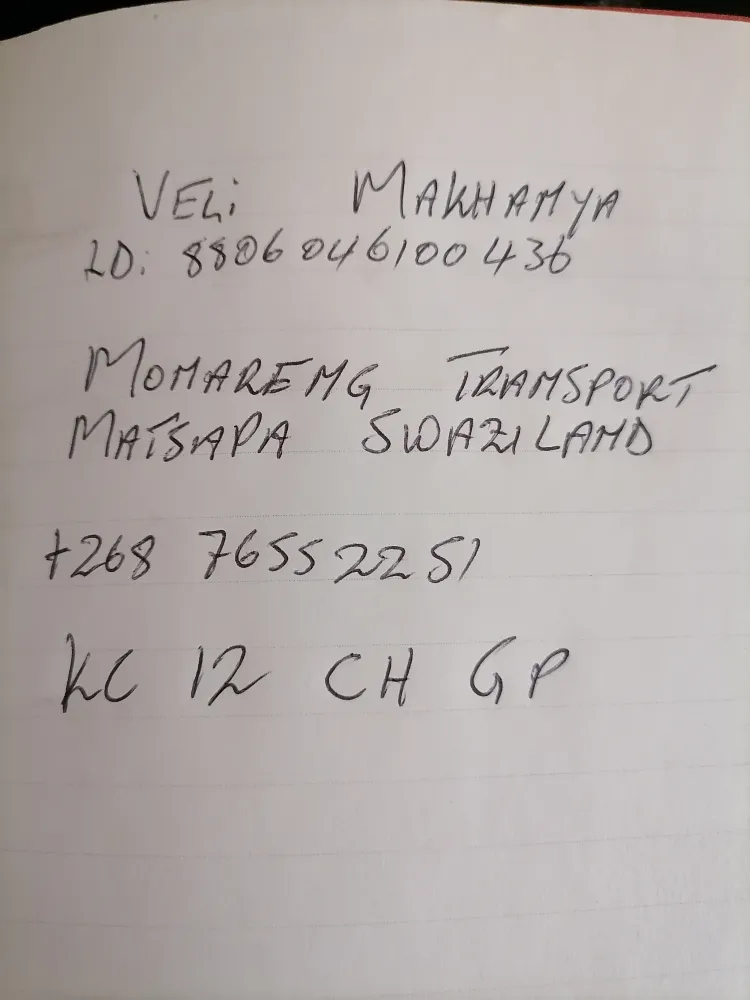 VELi MAKHANYA
ID: 8806046100436
MONARENG TRANSPORT
MATSAPA SWAZILAND
+268 76552251
KC 12 CH GP